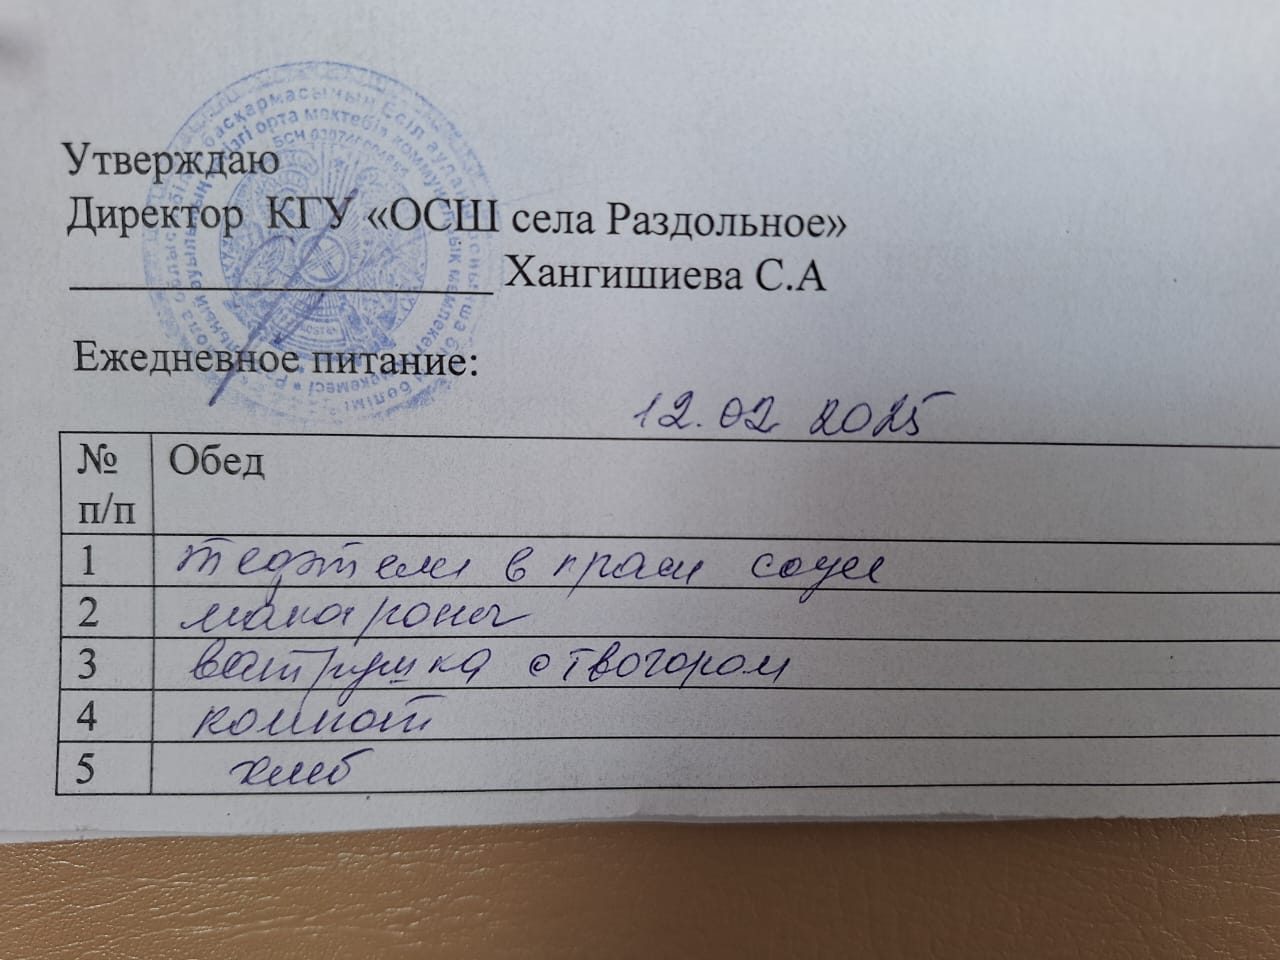 Утверждаю
Директор КГУ «ОСШ села Раздольное»
Хангишиева С.А
Ежедневное питание:
12.02 2025
№ п/п Обед
1 тефтели в крас соусе
2 макароны
3 ватрушка с творогом
4 компот
5 хлеб